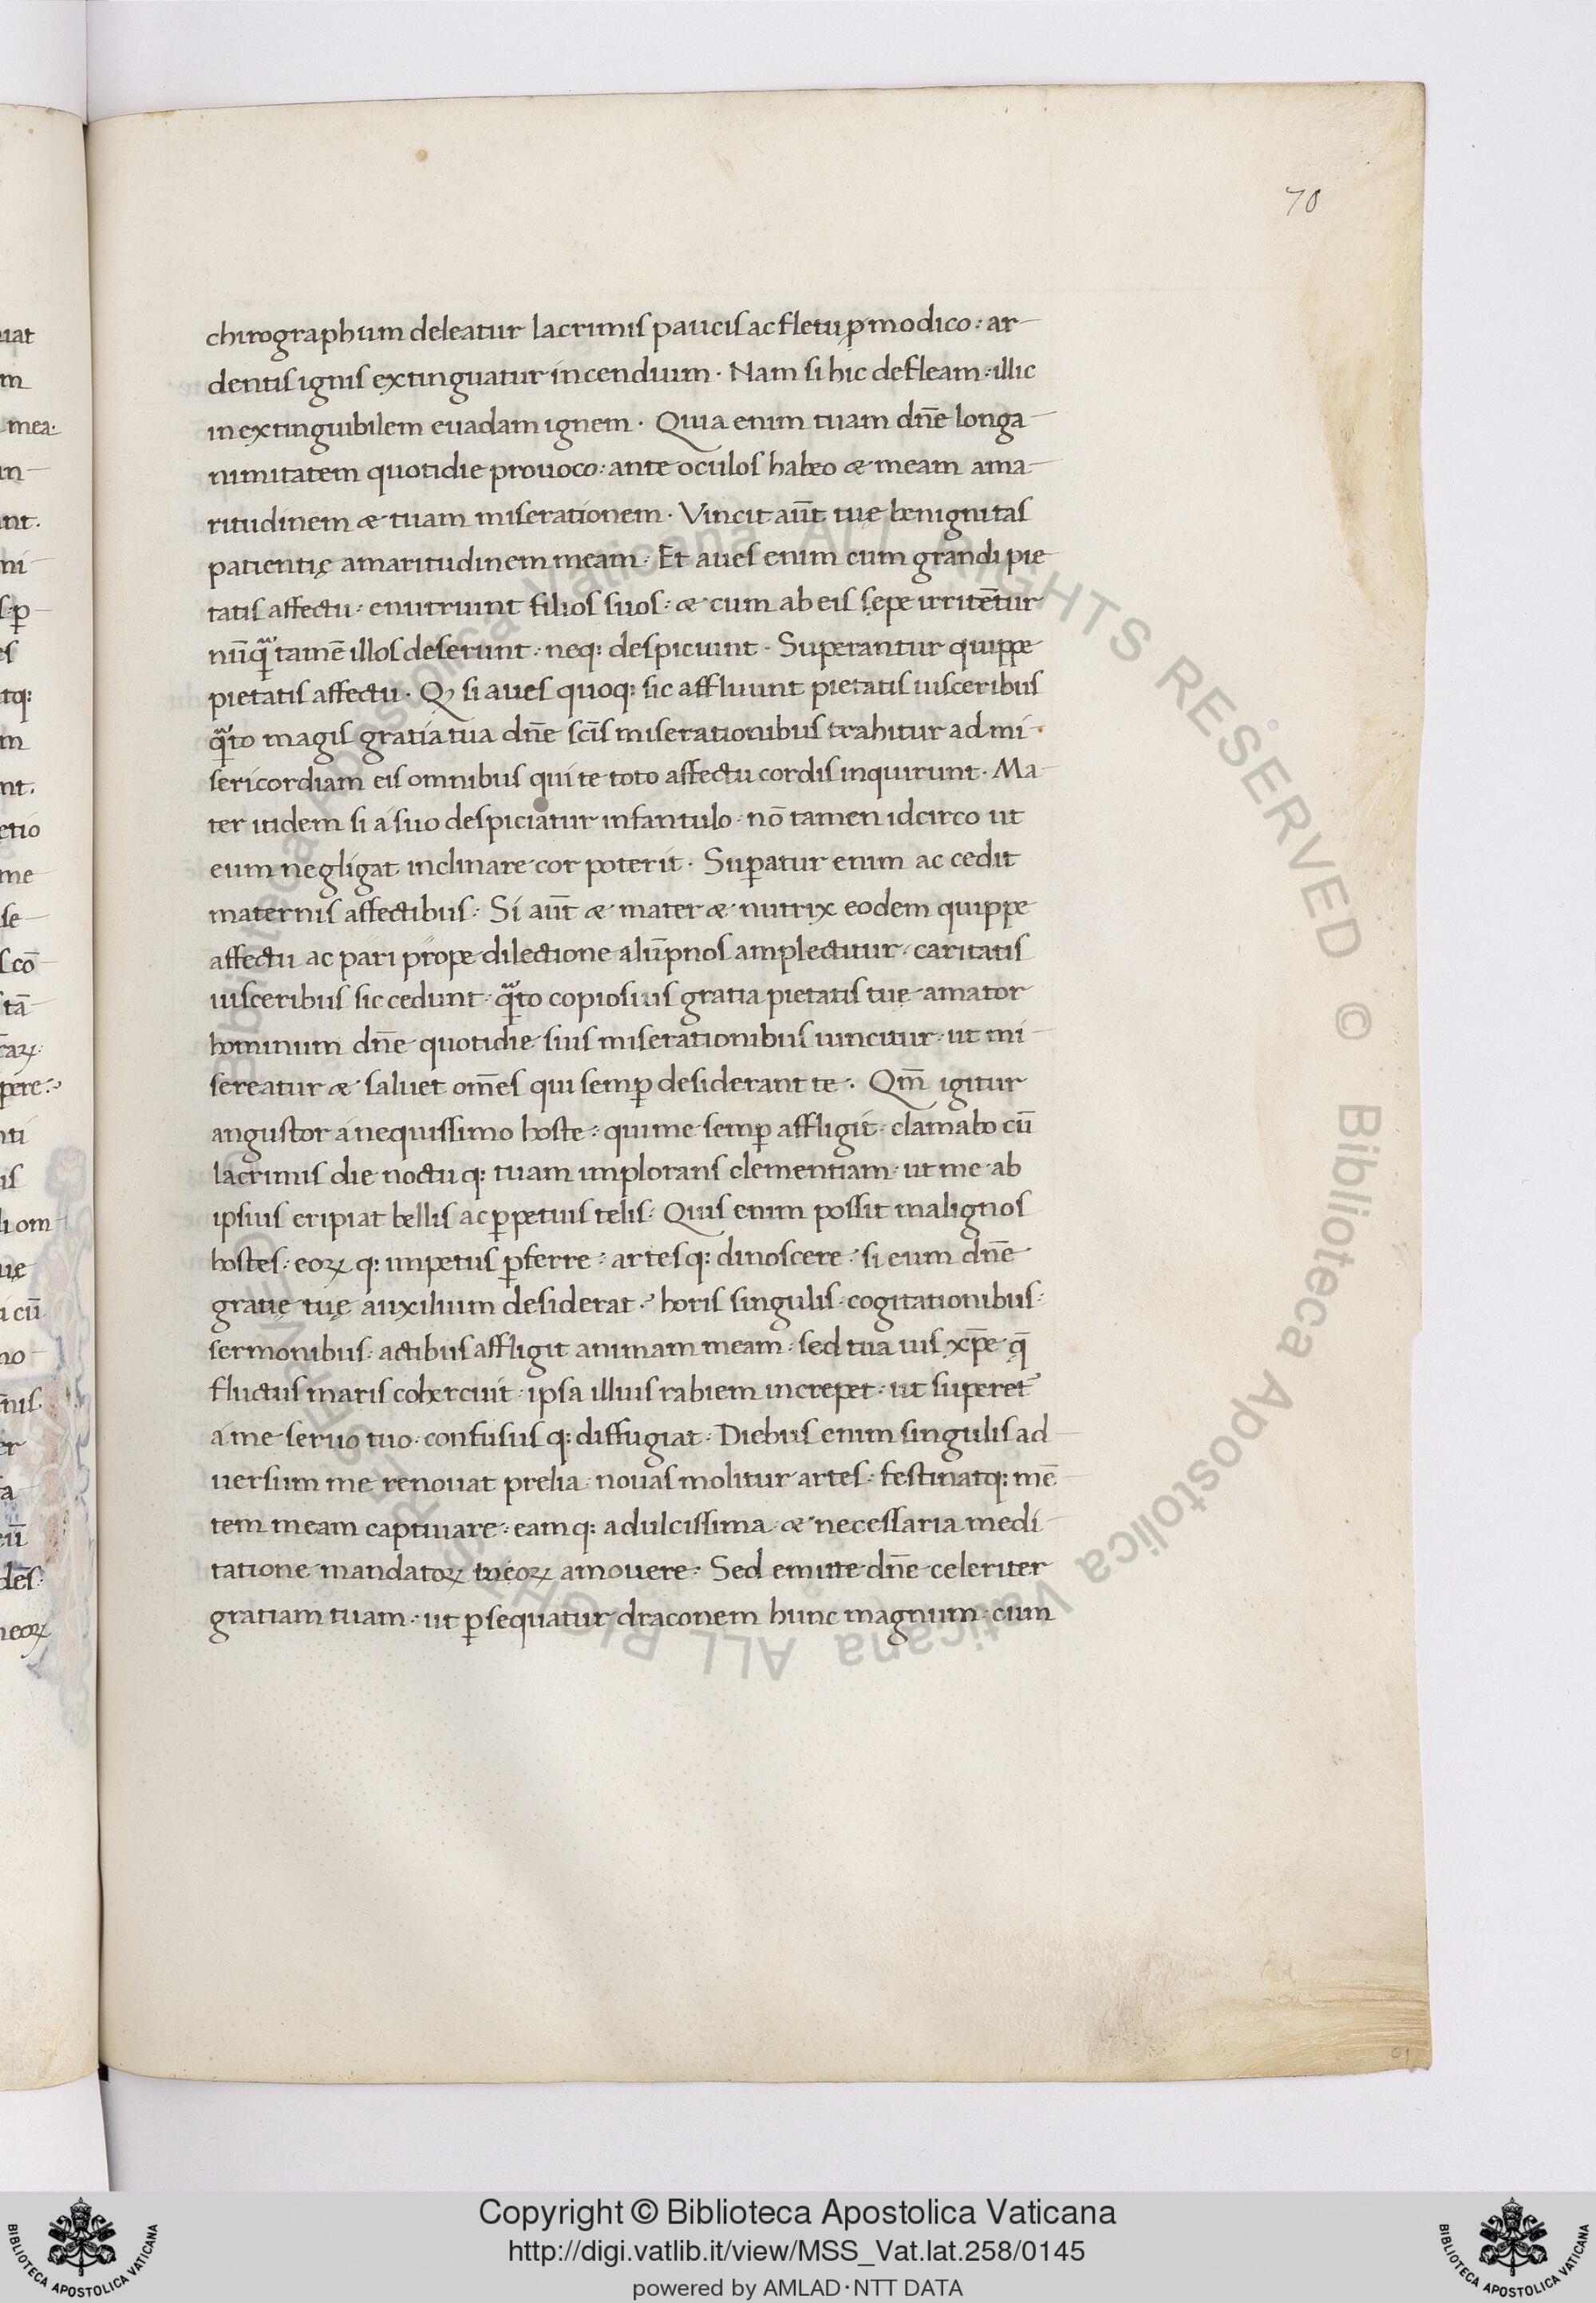 70
chirographum deleatur lacrimis paucis ac fletu ꝑmodico: ar-
dentis ignis extinguatur incendium · Nam si hic defleam: illic
inextinguibilem euadam ignem · Quia enim tuam dn̄e longa-
nimitatem quotidie prouoco: ante oculos habeo æ meam ama-
ritudinem æ tuam miserationem · Vincit aūt tuę benignitas
patientię amaritudinem meam · Et aues enim cum grandi pie-
tatis affectu: enutriunt filios suos: æ cum ab eis sępe irritēntur
nūꝗᷓ tamē illos deserunt: neq: despiciunt · Superantur quippe
pietatis affectu · Ꝙ si aues quoq: sic affluunt pietatis uisceribus
ꝗᷓto magis gratia tua dn̄e sc̄is miserationibus trahitur ad mi-
sericordiam eis omnibus qui te toto affectu cordis inquirunt · Ma-
ter itidem si á suo despiciatur infantulo · nō tamen idcirco ut
eum negligat inclinare cor poterit · Suꝑatur enim ac cedit
maternis affectibus: Si aūt æ mater æ nutrix eodem quippe
affectu ac pari prope dilectione alūpnos amplectitur · caritatis
uisceribus sic cedunt · ꝗᷓto copiosius gratia pietatis tuę amator
hominum dn̄e quotidie suis miserationibus uincitur · ut mi-
sereatur æ saluet om̄es qui semꝑ desiderant te · Qm̄ igitur
angustor á nequissimo hoste: qui me semꝑ affligit · clamabo cū
lacrimis die noctuq: tuam implorans clementiam · ut me ab
ipsius eripiat bellis ac ꝑpetuis telis: Quis enim possit malignos
hostes: eoꝝ q: impetus ꝑferre: artesq: dinoscere: si eum dn̄e
gratię tuę auxilium desiderat · horis singulis · cogitationibus:
sermonibus: actibus affligit animam meam: sed tua uis xp̄e q̄
fluctus maris cohercuit · ipsa illius rabiem increpet: ut superet᷒
á me seruo tuo · confusus q: diffugiat · Diebus enim singulis ad-
uersum me renouat prelia · nouas molitur artes: festinatq: mē-
tem meam captiuare: eamq: a dulcissima æ necessaria medi-
tatione mandatoꝝ tueoꝝ amouere · Sed emitte dn̄e celeriter
gratiam tuam · ut ꝑsequatur draconem hunc magnum · cum
Copyright © Biblioteca Apostolica Vaticana
http://digi.vatlib.it/view/MSS_Vat.lat.258/0145
powered by AMLAD·NTT DATA